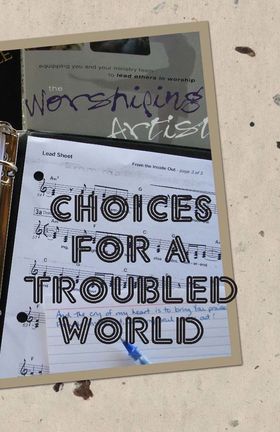 equipping you and your ministry team
to lead others in worship
the
Worshiping
Artist
Lead Sheet
From the Inside Out - page 3 of 3
CHOICES
FOR A
TROUBLED
WORLD
And the cry of my heart is to bring You praise
out!